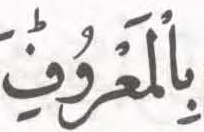 بِالْمَعْرُوفِؕ